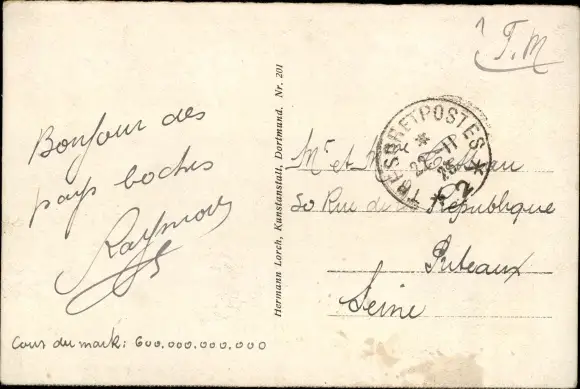 Bonjour des
pays boches
Raymond
Cours du mark: 600.000.000.000
Hermann Lorch, Kunstanstalt, Dortmund. Nr. 201
F.M
TRESOR ET POSTES
22-11
23
* 2 *
Mr et Mme
50 Rue de la République
Puteaux
Seine